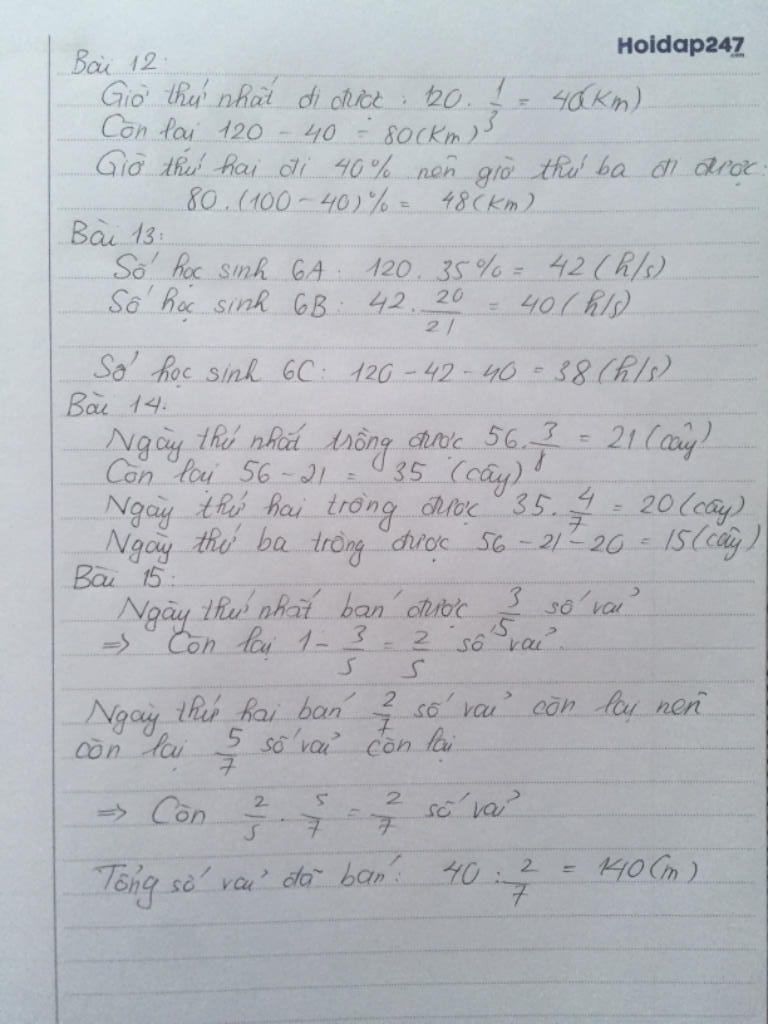 Hoidap247
.com
Bài 12:
Giờ thứ nhất đi được: 120 . 1/3 = 40 (km)
Còn lại 120 - 40 = 80 (km)
Giờ thứ hai đi 40% nên giờ thứ ba đi được:
80 . (100 - 40)% = 48 (km)
Bài 13:
Số học sinh 6A: 120 . 35% = 42 (h/s)
Số học sinh 6B: 42 . 20/21 = 40 (h/s)
Số học sinh 6C: 120 - 42 - 40 = 38 (h/s)
Bài 14:
Ngày thứ nhất trồng được 56 . 3/8 = 21 (cây)
Còn lại 56 - 21 = 35 (cây)
Ngày thứ hai trồng được 35 . 4/7 = 20 (cây)
Ngày thứ ba trồng được 56 - 21 - 20 = 15 (cây)
Bài 15:
Ngày thứ nhất bán được 3/5 số vải
=> Còn lại 1 - 3/5 = 2/5 số vải.
Ngày thứ hai bán 2/7 số vải còn lại nên
còn lại 5/7 số vải còn lại
=> Còn 2/5 . 5/7 = 2/7 số vải
Tổng số vải đã bán: 40 : 2/7 = 140 (m)